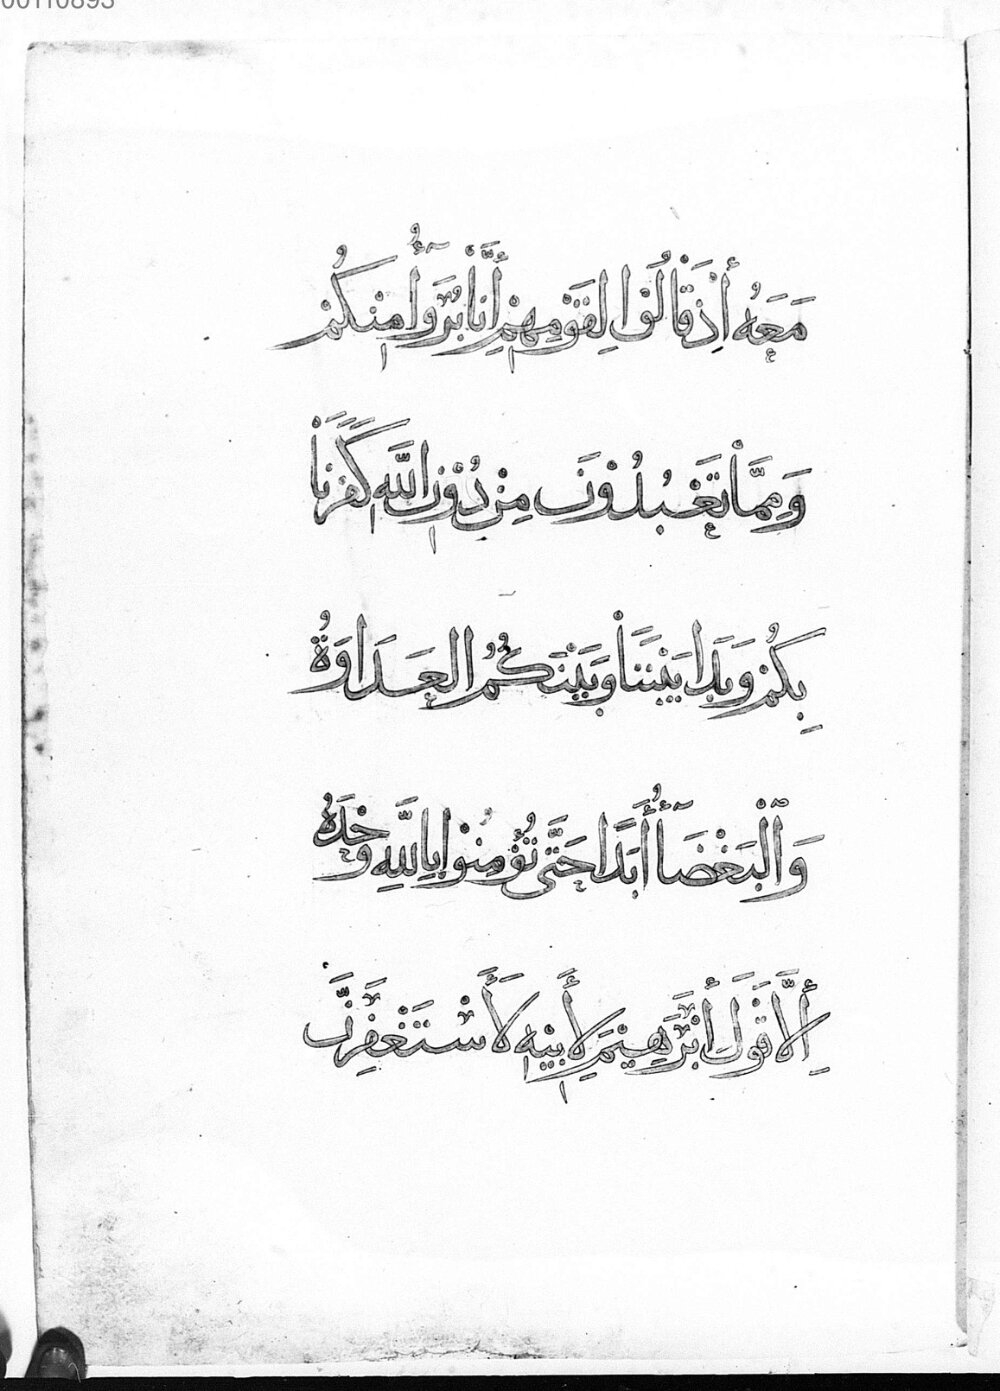 مَعَهُ إِذْ قَالُوا لِقَوْمِهِمْ إِنَّا بُرَءَٰٓؤُا مِنْكُمْ
وَمِمَّا تَعْبُدُوْنَ مِنْ دُوْنِ اللَّهِ كَفَرْنَا
بِكُمْ وَبَدَا بَيْنَنَا وَبَيْنَكُمُ الْعَدَاوَةُ
وَالْبَغْضَآءُ أَبَدًا حَتَّى تُؤْمِنُوْا بِاللَّهِ وَحْدَهُ
إِلَّا قَوْلَ إِبْرَهِيْمَ لِأَبِيْهِ لَأَسْتَغْفِرَنَّ